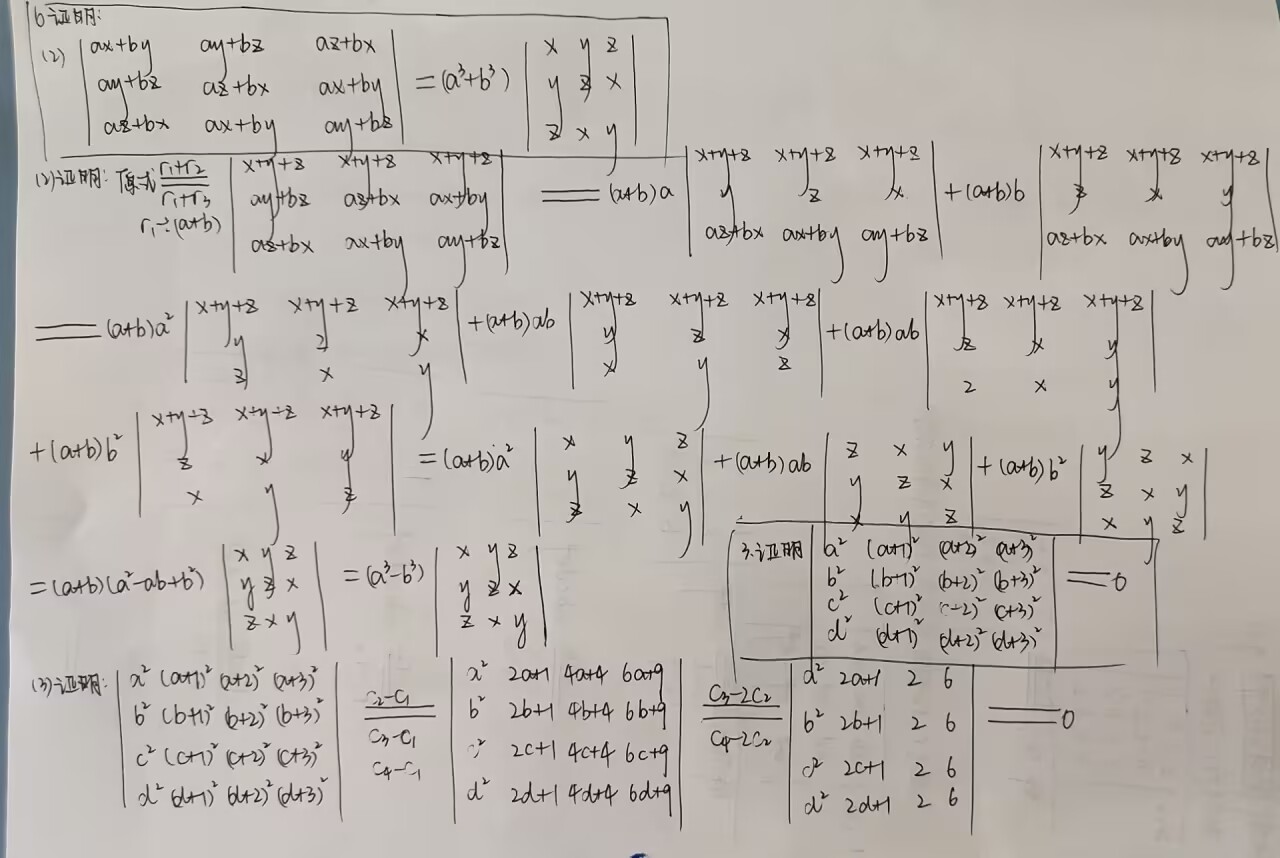 6证明:
(2) | ax+by ay+bz az+bx |
| ay+bz az+bx ax+by | =(a³+b³)
| az+bx ax+by ay+bz |
| x y z |
| y z x |
| z x y |
(2)证明: 原式 r₁+r₂
r₁+r₃
r₁÷(a+b)
| x+y+z x+y+z x+y+z |
| ay+bz az+bx ax+by |
| az+bx ax+by ay+bz |
=(a+b)a
| x+y+z x+y+z x+y+z |
| y z x |
| az+bx ax+by ay+bz |
+(a+b)b
| x+y+z x+y+z x+y+z |
| z x y |
| az+bx ax+by ay+bz |
=(a+b)a²
| x+y+z x+y+z x+y+z |
| y z x |
| z x y |
+(a+b)ab
| x+y+z x+y+z x+y+z |
| y z x |
| x y z |
+(a+b)ab
| x+y+z x+y+z x+y+z |
| z x y |
| z x y |
+(a+b)b²
| x+y+z x+y+z x+y+z |
| z x y |
| x y z |
=(a+b)a²
| x y z |
| y z x |
| z x y |
+(a+b)ab
| z x y |
| y z x |
| x y z |
+(a+b)b²
| y z x |
| z x y |
| x y z |
=(a+b)(a²-ab+b²)
| x y z |
| y z x |
| z x y |
=(a³-b³)
| x y z |
| y z x |
| z x y |
3.证明
| a² (a+1)² (a+2)² (a+3)² |
| b² (b+1)² (b+2)² (b+3)² | =0
| c² (c+1)² (c-2)² (c+3)² |
| d² (d+1)² (d+2)² (d+3)² |
(3)证明:
| a² (a+1)² (a+2)² (a+3)² |
| b² (b+1)² (b+2)² (b+3)² |
| c² (c+1)² (c+2)² (c+3)² |
| d² (d+1)² (d+2)² (d+3)² |
c₂-c₁
c₃-c₁
c₄-c₁
| a² 2a+1 4a+4 6a+9 |
| b² 2b+1 4b+4 6b+9 |
| c² 2c+1 4c+4 6c+9 |
| d² 2d+1 4d+4 6d+9 |
c₃-2c₂
c₄-2c₂
| a² 2a+1 2 6 |
| b² 2b+1 2 6 | =0
| c² 2c+1 2 6 |
| d² 2d+1 2 6 |